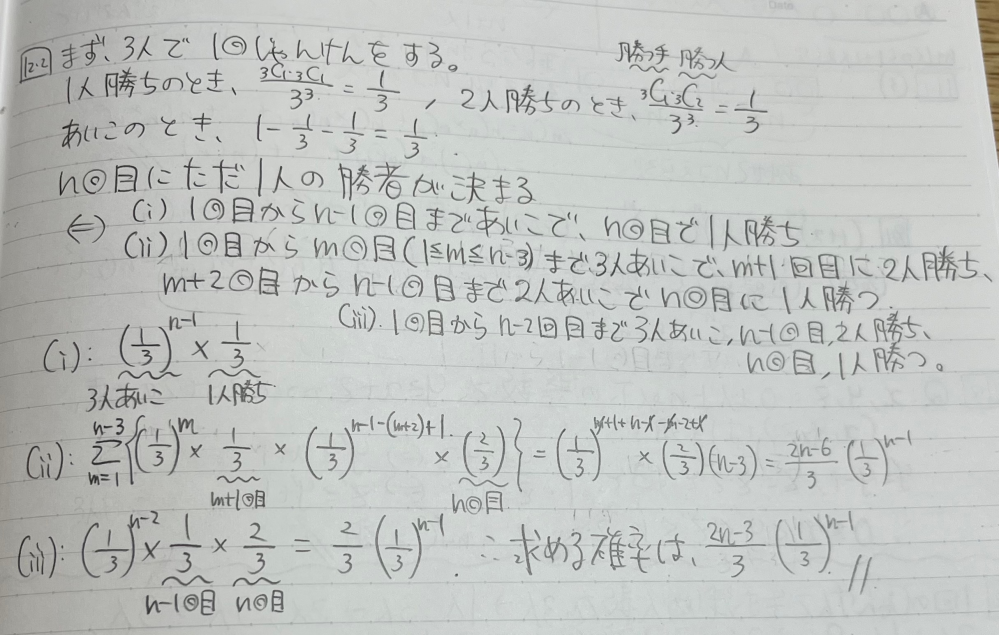 12.2 まず、3人で1回じゃんけんをする。
勝つ手 勝つ人
1人勝ちのとき、₃C₁·₃C₁/3³ = 1/3 , 2人勝ちのとき、₃C₁·₃C₂/3³ = 1/3
あいこのとき、1 - 1/3 - 1/3 = 1/3.
n回目にただ1人の勝者が決まる
⇔ (i) 1回目からn-1回目まであいこで、n回目で1人勝ち
(ii) 1回目からm回目(1≤m≤n-3)まで3人あいこで、m+1回目に2人勝ち、
m+2回目からn-1回目まで2人あいこでn回目に1人勝つ.
(iii). 1回目からn-2回目まで3人あいこ, n-1回目, 2人勝ち、
n回目, 1人勝つ。
(i): (1/3)^{n-1} × 1/3
3人あいこ 1人勝ち
(ii): Σ_{m=1}^{n-3} {(1/3)^m × 1/3 × (1/3)^{n-1-(m+2)+1} × (2/3)} = (1/3)^{m+1+n-1-m-2+1} × (2/3)(n-3) = (2n-6)/3 (1/3)^{n-1}
m+1回目 n回目
(iii): (1/3)^{n-2} × 1/3 × 2/3 = 2/3 (1/3)^{n-1}. ∴求める確率は、(2n-3)/3 (1/3)^{n-1} //
n-1回目 n回目